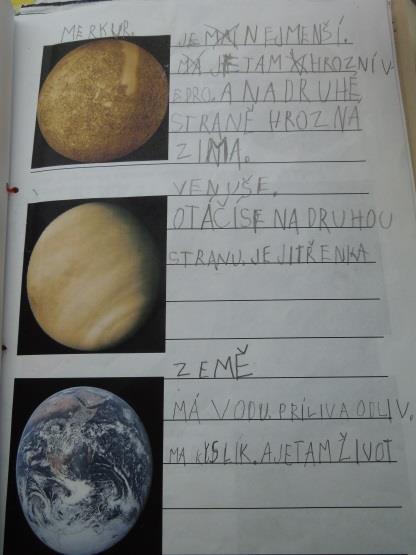 MERKUR.
JE NEJMENŠÍ.
MÁ JE TAM HROZNÍ V
EPRO. A NA DRUHÉ
STRANĚ HROZNÁ
ZIMA.
VENUŠE.
OTÁČÍ SE NA DRUHOU
STRANU. JE JITŘENKA
ZEMĚ
MÁ VODU. PŘÍLIV A ODLIV.
MA KYSLÍK. A JE TAM ŽIVOT